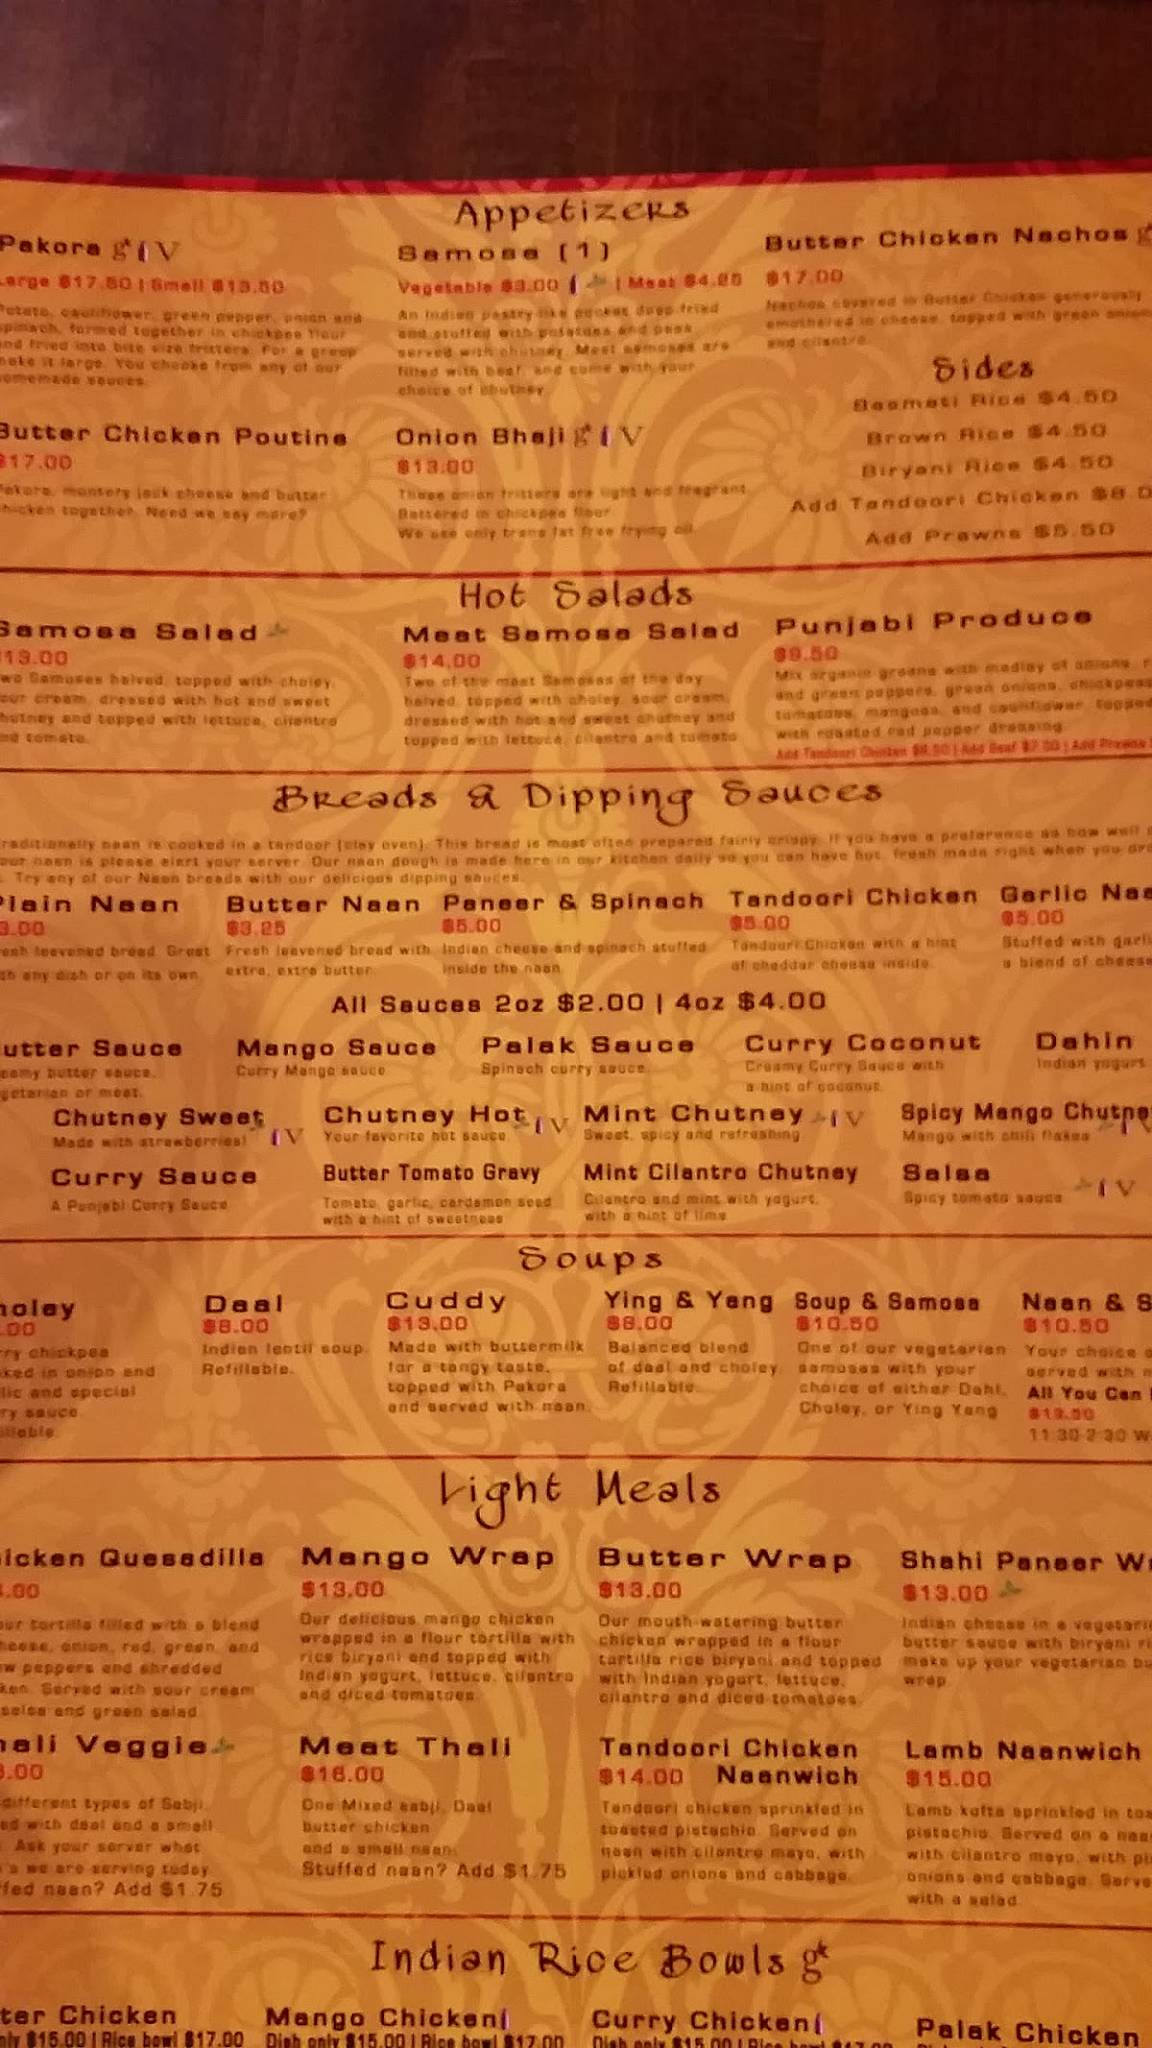 Appetizers
Pakora
Large $17.50 | Small $13.50
Potato, cauliflower, green pepper, onion and
spinach, formed together in chickpea flour
and fried into bite size fritters. For a group
make it large. You choose from any of our
homemade sauces.
Samosa (1)
Vegetable $3.00 | Meat $4.25
An Indian pastry-like pocket deep fried
and stuffed with potatoes and peas
served with chutney. Meat samosas are
filled with beef, and come with your
choice of chutney.
Butter Chicken Nachos
$17.00
Nachos covered in Butter Chicken generously
smothered in cheese, topped with green onions
and cilantro.
Butter Chicken Poutine
$17.00
Pakora, montery jack cheese and butter
chicken together. Need we say more?
Onion Bhaji
$13.00
These onion fritters are light and fragrant
Battered in chickpea flour.
We use only trans fat free frying oil.
Sides
Basmati Rice $4.50
Brown Rice $4.50
Biryani Rice $4.50
Add Tandoori Chicken
Add Prawns $5.50
Hot Salads
Samosa Salad
13.00
Two Samosas halved, topped with choley,
sour cream, dressed with hot and sweet
chutney and topped with lettuce, cilantro
and tomato.
Meat Samosa Salad
$14.00
Two of the meat Samosas of the day
halved, topped with choley, sour cream,
dressed with hot and sweet chutney and
topped with lettuce, cilantro and tomato
Punjabi Produce
$9.50
Mix organic greens with medley of onions,
and green peppers, green onions, chickpeas
tomatoes, mangoes, and cauliflower, topped
with roasted red pepper dressing.
Add Tandoori Chicken | Add Beef | Add Prawns
Breads & Dipping Sauces
Traditionally naan is cooked in a tandoor (clay oven). This bread is most often prepared fairly crispy. If you have a preference as how well
your naan is please alert your server. Our naan dough is made here in our kitchen daily so you can have hot, fresh made right when you
Try any of our Naan breads with our delicious dipping sauces.
Plain Naan
3.00
leavened bread. Great
any dish or on its own.
Butter Naan
$3.25
Fresh leavened bread with
extra, extra butter.
Paneer & Spinach
$5.00
Indian cheese and spinach stuffed
inside the naan.
Tandoori Chicken
$5.00
Tandoori Chicken with a hint
of cheddar cheese inside.
Garlic
$5.00
Stuffed with
a blend of cheese
All Sauces 2oz $2.00 | 4oz $4.00
utter Sauce
eamy butter sauce.
getarian or meat.
Mango Sauce
Curry Mango sauce
Palak Sauce
Spinach curry sauce
Curry Coconut
Creamy Curry Sauce with
a hint of coconut.
Dahin
Indian yogurt
Chutney Sweet
Made with strawberries!
Chutney Hot
Your favorite hot sauce
Mint Chutney
Sweet, spicy and refreshing
Spicy Mango Chutne
Mango with chili flakes
Curry Sauce
A Punjabi Curry Sauce
Butter Tomato Gravy
Tomato, garlic, cardamon seed
with a hint of sweetness
Mint Cilantro Chutney
Cilantro and mint with yogurt,
with a hint of lime
Salsa
Spicy tomato sauce
Soups
holey
.00
rry chickpea
ked in onion and
lic and special
ry sauce
illable.
Daal
$8.00
Indian lentil soup.
Refillable.
Cuddy
$13.00
Made with buttermilk
for a tangy taste,
topped with Pakora
and served with naan.
Ying & Yang
$8.00
Balanced blend
of daal and choley.
Refillable.
Soup & Samosa
$10.50
One of our vegetarian
samosas with your
choice of either Dahl,
Choley, or Ying Yang
Naan & S
$10.50
Your choice
served with
All You Can
$13.50
11:30-2:30 W
Light Meals
icken Quesadilla
.00
our tortilla filled with a blend
heese, onion, red, green, and
w peppers and shredded
ken. Served with sour cream
salsa and green salad.
Mango Wrap
$13.00
Our delicious mango chicken
wrapped in a flour tortilla with
rice biryani and topped with
Indian yogurt, lettuce, cilantro
and diced tomatoes.
Butter Wrap
$13.00
Our mouth-watering butter
chicken wrapped in a flour
tortilla rice biryani and topped
with Indian yogurt, lettuce,
cilantro and diced tomatoes.
Shahi Paneer W
$13.00
Indian cheese in a
butter sauce with biryani
make up your vegetarian
wrap.
hali Veggie
.00
different types of Sabji,
ed with daal and a small
. Ask your server what
's we are serving today
ffed naan? Add $1.75
Meat Thali
$16.00
One Mixed sabji, Daal
butter chicken
and a small naan.
Stuffed naan? Add $1.75
Tandoori Chicken
$14.00 Naanwich
Tandoori chicken sprinkled in
toasted pistachio. Served on
naan with cilantro mayo, with
pickled onions and cabbage.
Lamb Naanwich
$15.00
Lamb kofta sprinkled in
pistachio. Served on a
with cilantro mayo, with
onions and cabbage.
with a salad.
Indian Rice Bowls
ter Chicken
nly $15.00 | Rice bowl $17.00
Mango Chicken
Dish only $15.00 | Rice bowl $17.00
Curry Chicken
Dish only $15.00 | Rice bowl
Palak Chicken